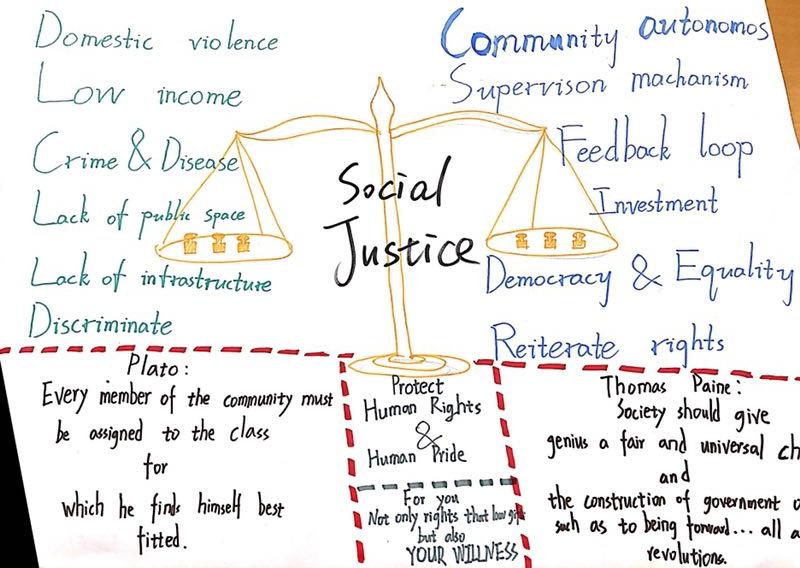 Domestic violence
Low income
Crime & Disease
Lack of public space
Lack of infrastructure
Discriminate
Community autonomos
Supervison machanism
Feedback loop
Investment
Democracy & Equality
Reiterate rights
Social
Justice
Plato:
Every member of the community must
be assigned to the class
for
which he finds himself best
fitted.
Protect
Human Rights
&
Human Pride
For you
Not only rights that law
but also
YOUR WILLNESS
Thomas Paine:
Society should give
genius a fair and universal
and
the construction of government
such as to being forward... all
revolutions.